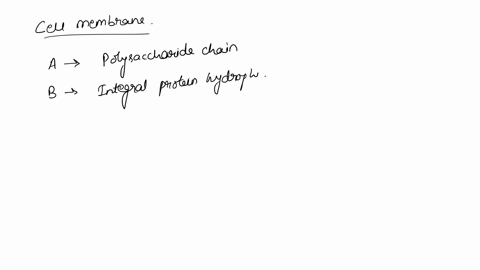 Cell membrane.
A → Polysaccharide chain
B → Integral protein hydroph.